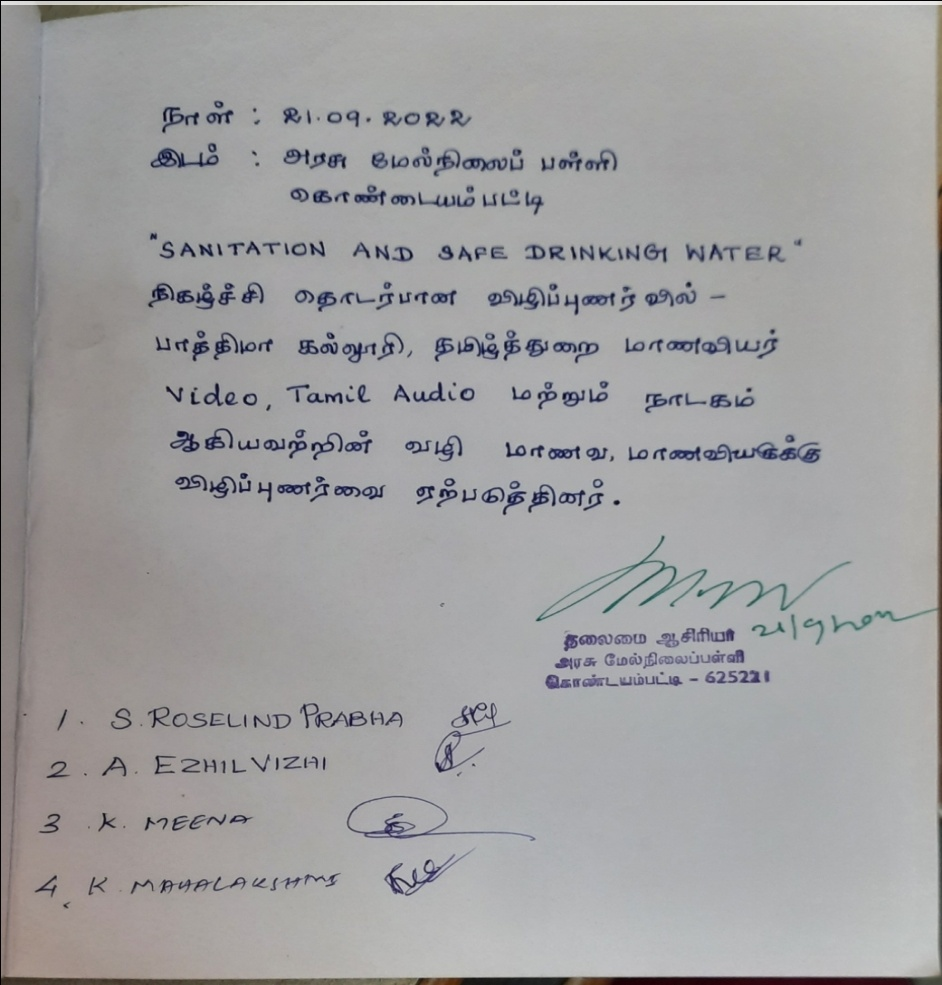 நாள் : 21.09.2022
இடம் : அரசு மேல்நிலைப் பள்ளி
கொண்டையம்பட்டி
"SANITATION AND SAFE DRINKING WATER"
நிகழ்ச்சி தொடர்பான விழிப்புணர்வில் -
பாத்திமா கல்லூரி, தமிழ்த்துறை மாணவியர்
Video, Tamil Audio மற்றும் நாடகம்
ஆகியவற்றின் வழி மாணவ, மாணவியருக்கு
விழிப்புணர்வை ஏற்படுத்தினர்.
21/9/2022
தலைமை ஆசிரியர்
அரசு மேல்நிலைப்பள்ளி
கொண்டயம்பட்டி - 625221
1. S. ROSELIND PRABHA
2. A. EZHIL VIZHI
3. K. MEENA
4. K. MAHALAKSHMI